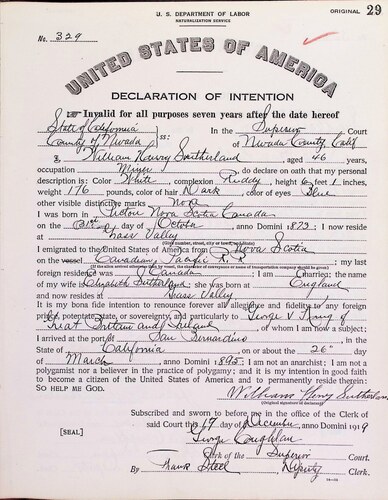 U. S. DEPARTMENT OF LABOR
NATURALIZATION SERVICE
ORIGINAL 29
No. 329
UNITED STATES OF AMERICA
DECLARATION OF INTENTION
Invalid for all purposes seven years after the date hereof
State of California
County of Nevada ss: In the Superior Court
of Nevada County, Calif
I, William Henry Sutherland, aged 46 years,
occupation Miner, do declare on oath that my personal
description is: Color White, complexion Ruddy, height 6 feet 1 inches,
weight 176 pounds, color of hair Dark, color of eyes Blue
other visible distinctive marks None
I was born in Pictou Nova Scotia Canada
on the 31st day of October, anno Domini 1873; I now reside
at Grass Valley
(Give number, street, city or town, and State.)
I emigrated to the United States of America from Nova Scotia
on the vessel Canadian Pacific R.R.; my last
(If the alien arrived otherwise than by vessel, the character of conveyance or name of transportation company should be given)
foreign residence was Canada I am married; the name
of my wife is Elizabeth Sutherland; she was born at England
and now resides at Grass Valley
It is my bona fide intention to renounce forever all allegiance and fidelity to any foreign
prince, potentate, state, or sovereignty, and particularly to George V King of
Great Britain and Ireland, of whom I am now a subject;
I arrived at the port of San Bernardino, in the
State of California, on or about the 26 day
of March, anno Domini 1895; I am not an anarchist; I am not a
polygamist nor a believer in the practice of polygamy; and it is my intention in good faith
to become a citizen of the United States of America and to permanently reside therein:
SO HELP ME GOD.
William Henry Sutherland
(Original signature of declarant)
Subscribed and sworn to before me in the office of the Clerk of
said Court this 17 day of December, anno Domini 1919
[SEAL]
George Coughlan
Clerk of the Superior Court.
By Frank Steel, Deputy Clerk.